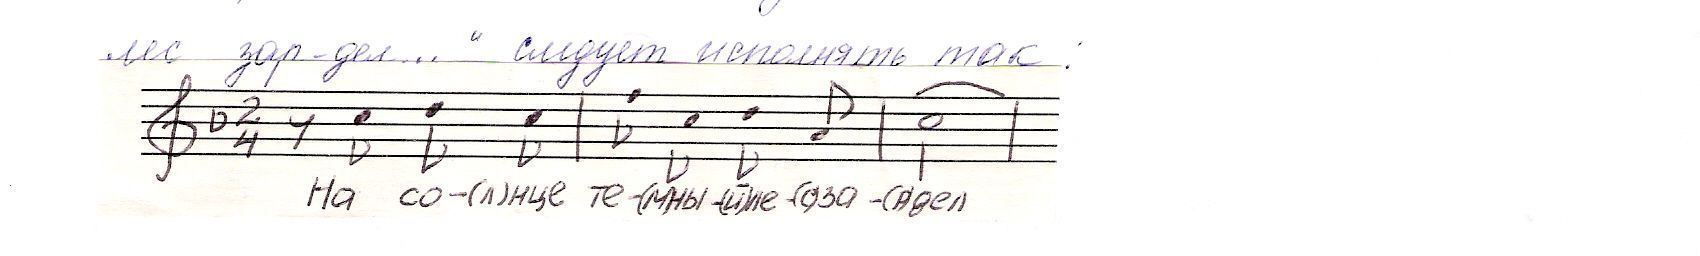 лес зар-дел..." следует исполнять так:
2
4
На со-(л)нце те-(м)ны-(й)ле-(с)за-(р)дел